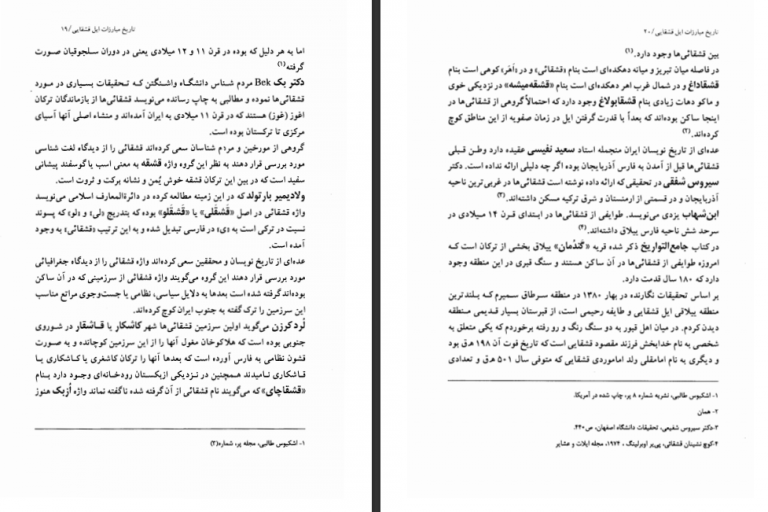 تاریخ مبارزات ایل قشقایی/۱۹
اما به هر دلیل که بوده در قرن ۱۱ و ۱۲ میلادی یعنی در دوران سلجوقیان صورت
گرفته(۱)
دکتر بک Bek مردم شناس دانشگاه واشنگتن که تحقیقات بسیاری در مورد
قشقائی‌ها نموده و مطالبی به چاپ رسانده می‌نویسد قشقائی‌ها از بازماندگان ترکان
اغوز (غوز) هستند که در قرن ۱۱ میلادی به ایران آمده‌اند و منشاء اصلی آنها آسیای
مرکزی تا ترکستان بوده است.
گروهی از مورخین و مردم شناسان سعی کرده‌اند قشقائی را از دیدگاه لغت شناسی
مورد بررسی قرار دهند به نظر این گروه واژه قشقه به معنی اسب یا گوسفند پیشانی
سفید است که در بین این ترکان قشقه خوش یُمن و نشانه برکت و ثروت است.
ولادیمیر بارتولد که در این زمینه مطالعه کرده در دائرةالمعارف اسلامی می‌نویسد
واژه قشقائی در اصل «قشقلی» یا «قشقلو» بوده که بتدریج «لی» و «لو» که پسوند
نسبت در ترکی است به «ی» در فارسی تبدیل شده و به این ترتیب «قشقائی» به وجود
آمده است.
عده‌ای از تاریخ نویسان و محققین سعی کرده‌اند واژه قشقائی را از دیدگاه جغرافیائی
مورد بررسی قرار دهند این گروه می‌گویند واژه قشقائی از سرزمینی که در آن ساکن
بوده‌اند گرفته شده است بعدها به دلایل سیاسی، نظامی یا جست‌وجوی مراتع مناسب
این سرزمین را ترک گفته به جنوب ایران کوچ کرده‌اند.
لُرد کورزن می‌گوید اولین سرزمین قشقائی‌ها شهر کاشکار یا قاشقار در شوروی
جنوبی بوده است که هلاکوخان مغول آنها را از این سرزمین کوچانده و به صورت
قشون نظامی به فارس آورده است که بعدها آنها را ترکان کاشغری یا کاشکاری یا
قاشکاری نامیدند همچنین در نزدیکی ازبکستان رودخانه‌ای وجود دارد بنام
«قشقاچای» که می‌گویند نام قشقائی از آن گرفته شده ناگفته نماند واژه اُزبک هنوز
۱- اشکبوس طالبی، مجله پر، شماره(۳)
تاریخ مبارزات ایل قشقایی/۲۰
بین قشقائی‌ها وجود دارد.(۱)
در فاصله میان تبریز و میانه دهکده‌ای است بنام «قشقائی» و در «اهر» کوهی است بنام
قشقاداغ و در شمال غرب اهر دهکده‌ای است بنام «قشقه‌میشه» در نزدیکی خوی
و ماکو دهات زیادی بنام قشقابولاغ وجود دارد که احتمالاً گروهی از قشقائی‌ها در
اینجا ساکن بوده‌اند که بعداً با قدرت گرفتن ایل در زمان صفویه از این مناطق کوچ
کرده‌اند.(۲)
عده‌ای از تاریخ نویسان ایران منجمله استاد سعید نفیسی عقیده دارد وطن قبلی
قشقائی‌ها قبل از آمدن به فارس آذربایجان بوده اگر چه دلیلی ارائه نداده است. دکتر
سیروس شفقی در تحقیقی که ارائه داده نوشته است قشقائی‌ها در غربی‌ترین ناحیه
آذربایجان و در قسمتی از ارمنستان و شرق ترکیه مسکن داشته‌اند.(۳)
ابن‌شهاب یزدی می‌نویسد. طوایفی از قشقائی‌ها در ابتدای قرن ۱۴ میلادی در
سرحد شش ناحیه فارس ییلاق داشته‌اند.(۴)
در کتاب جامع‌التواریخ ذکر شده قریه «گندُمان» ییلاق بخشی از ترکان است که
امروزه طوایفی از قشقائی‌ها در آن ساکن هستند و سنگ قبری در این منطقه وجود
دارد که ۱۸۰ سال قدمت دارد.
بر اساس تحقیقات نگارنده در بهار ۱۳۸۰ در منطقه سرطاق سمیرم که بلندترین
منطقه ییلاقی ایل قشقایی و طایفه رحیمی است، از قبرستان بسیار قدیمی منطقه
دیدن کردم. در میان اهل قبور به دو سنگ رنگ و رو رفته برخوردم که یکی متعلق به
شخصی به نام خدابخش فرزند مقصود قشقایی است که تاریخ فوت آن ۱۹۸ ه‍.ق بود
و دیگری به نام امامقلی ولد امام‌وردی قشقایی که متوفی سال ۵۰۱ ه‍.ق و تعدادی
۱- اشکبوس طالبی، نشریه شماره ۸ پر، چاپ شده در آمریکا.
۲- همان
۳-دکتر سیروس شفیعی، تحقیقات دانشگاه اصفهان، ص۴۴۰.
۴-کوچ نشینان قشقائی، پی‌یر اوبرلینگ ، ۱۹۷۴، مجله ایلات و عشایر